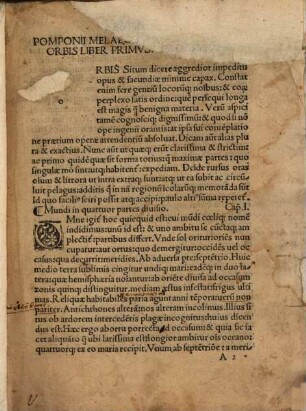 POMPONII MELAE
ORBIS LIBER PRIMVS.
RBIS Situm dicere aggredior impeditū
opus & facundiæ minime capax. Constat
enim fere gentiū locorūq; noībus: & eorū
perplexo satis ordine: quē persequi longa
est magis q̄ benigna materia. Verū aspici
tamē cognosciq; dignissimū: & quod si nō
ope ingenii orantis at ipsa sui cōtēplatiōe
ne prætium operæ attendentiū absoluat. Dicam autē alias plu
ra & exactius. Nunc aūt ut quæq; erūt clarissima & strictim
ac primo quidē quæ sit forma totius: quæ maximæ partes: quo
singulæ mō sint atq; habitent: expediam. Deīde rursus oras
oīum & litora ut intra extraq; sunt: atq; ut ea subit ac circuit
luit pelagus: additis q̄ in nā regionū īcolarūq; memorāda sūt
Id quo facilius sciri possit atq; accipi paulo altius sūma repetet
Mundi in quattuor partes diuisio. Cap. I.
Mne igit hoc quicquid est cui mūdi cœliq; nomē
indidimus: unū id est: & uno ambitu se cūctaq; am
plectit partibus differt. Vnde sol oritur oriēs nun
cupatur aut ortus: quo demergitur occidēs uel oc
casus: qua decurrit meridies. Ab aduersa pte septētrio. Huic
medio terra sublimis cingitur undiq; mari: eodēq; in duo la
tera quæ hemisphæria noīant: ab oriēte diuisa ad occasum
zonis quinq; distinguitur. mediam æstus infestat frigus ulti
mas. Reliquæ habitabiles paria agunt anni tēpora uerū non
pariter. Antichthones alterā nos alteram incolimus. Illius si
tus ob ardorem intercedētis plagæ incognitus: huius dicen
dus est. Hæc ergo ab ortu porrecta ad occasum & quia sic ia
cet aliquāto q̄ ubi latissima est lōgior ambitur oīs oceano:
quattuorq; ex eo maria recipit. Vnum, ab septētriōe: a meri
A 2